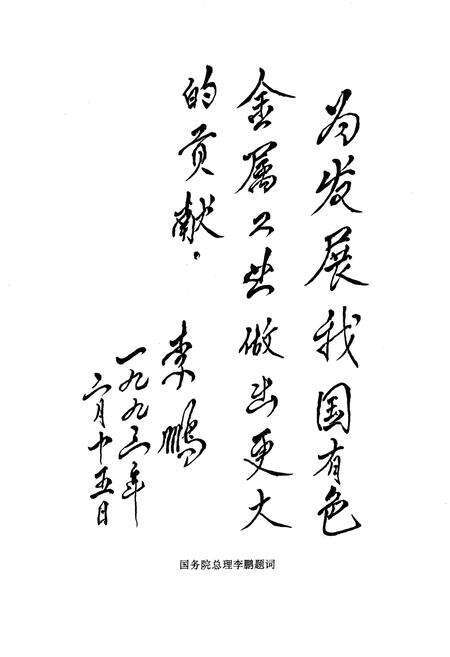 为发展我国有色
金属工业做出更大
的贡献。
李鹏
一九九三年
六月十五日
国务院总理李鹏题词